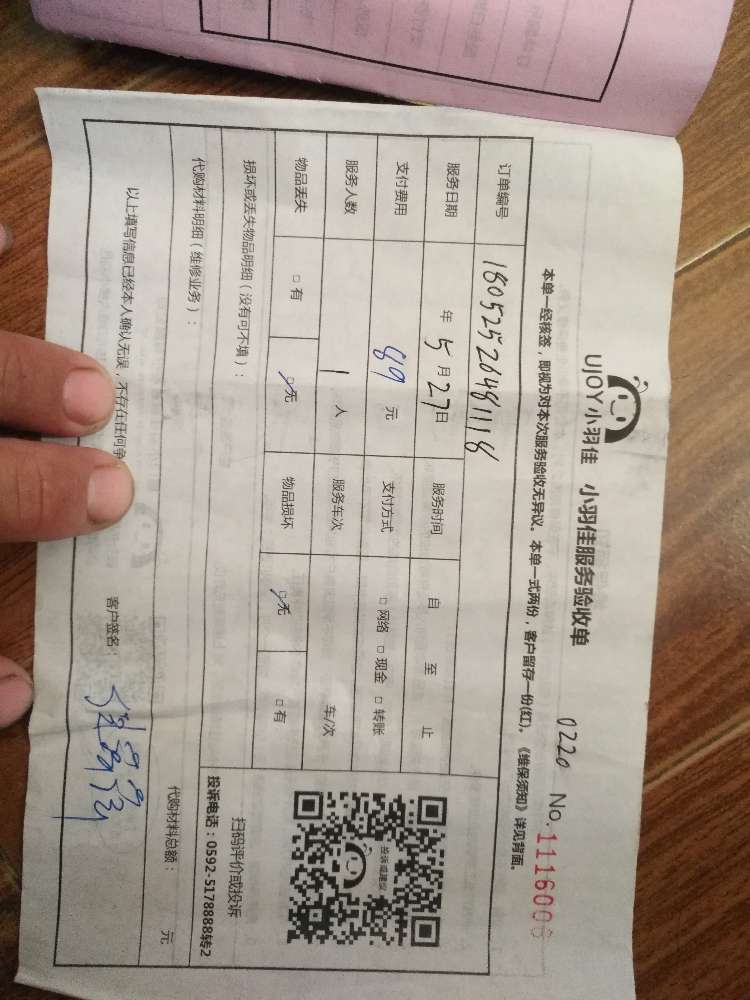 UJOY小羽佳 小羽佳服务验收单
0220 No.1116006
本单一经核签，即视为对本次服务验收无异议。本单一式两份，客户留存一份(红)。《维保须知》详见背面。
订单编号 180525264811118
服务日期 年5月27日 服务时间 自 至 止
支付费用 89元 支付方式 □网络 □现金 □转账
服务人数 1人 服务车次 车/次
物品丢失 □有 ☑无 物品损坏 ☑无 □有
损坏或丢失物品明细（没有可不填）：
投诉或建议
扫码评价或投诉
投诉电话：0592-5178888转2
代购材料明细（维修业务）：
代购材料总额： 元
以上填写信息已经本人确认无误，不存在任何争
客户签名：